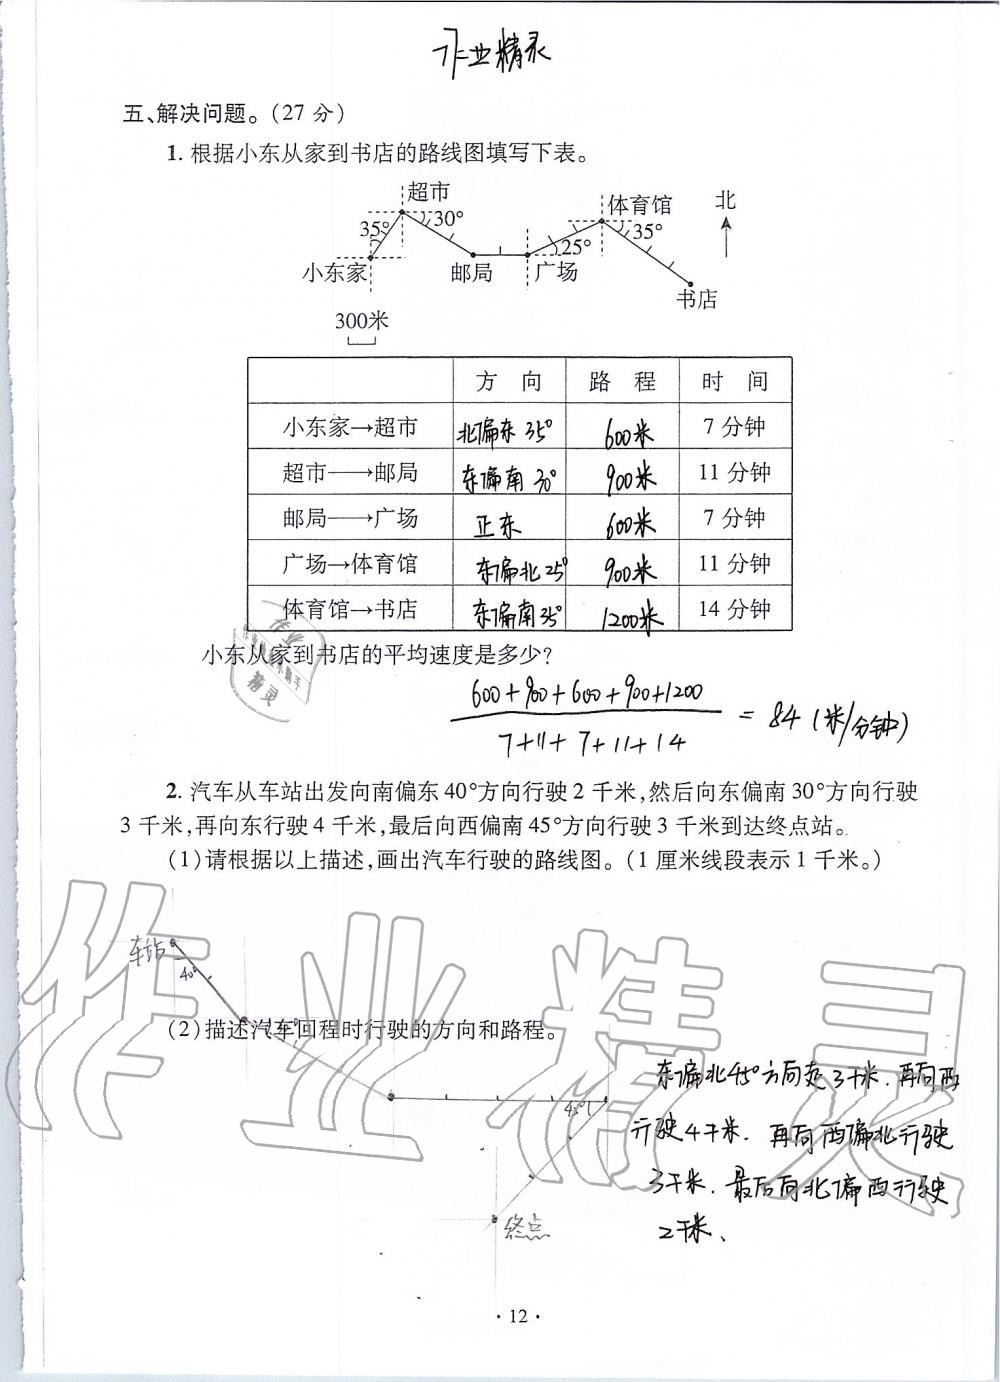 作业精灵
五、解决问题。(27 分)
1. 根据小东从家到书店的路线图填写下表。
超市
体育馆
北
35°
30°
25°
35°
小东家
邮局
广场
书店
300米
方 向 路 程 时 间
小东家→超市 北偏东35° 600米 7 分钟
超市→邮局 东偏南30° 900米 11 分钟
邮局→广场 正东 600米 7 分钟
广场→体育馆 东偏北25° 900米 11 分钟
体育馆→书店 东偏南35° 1200米 14 分钟
小东从家到书店的平均速度是多少?
600+900+600+900+1200
7+11+7+11+14
= 84 (米/分钟)
2. 汽车从车站出发向南偏东40°方向行驶2 千米,然后向东偏南30°方向行驶
3 千米,再向东行驶4 千米,最后向西偏南45°方向行驶3 千米到达终点站。
(1)请根据以上描述,画出汽车行驶的路线图。(1 厘米线段表示1 千米。)
车站
40°
(2)描述汽车回程时行驶的方向和路程。
45°
终点
东偏北45°方向走3千米.再向西
行驶4千米.再向西偏北行驶
3千米.最后向北偏西行驶
2千米、
作业精灵
· 12 ·